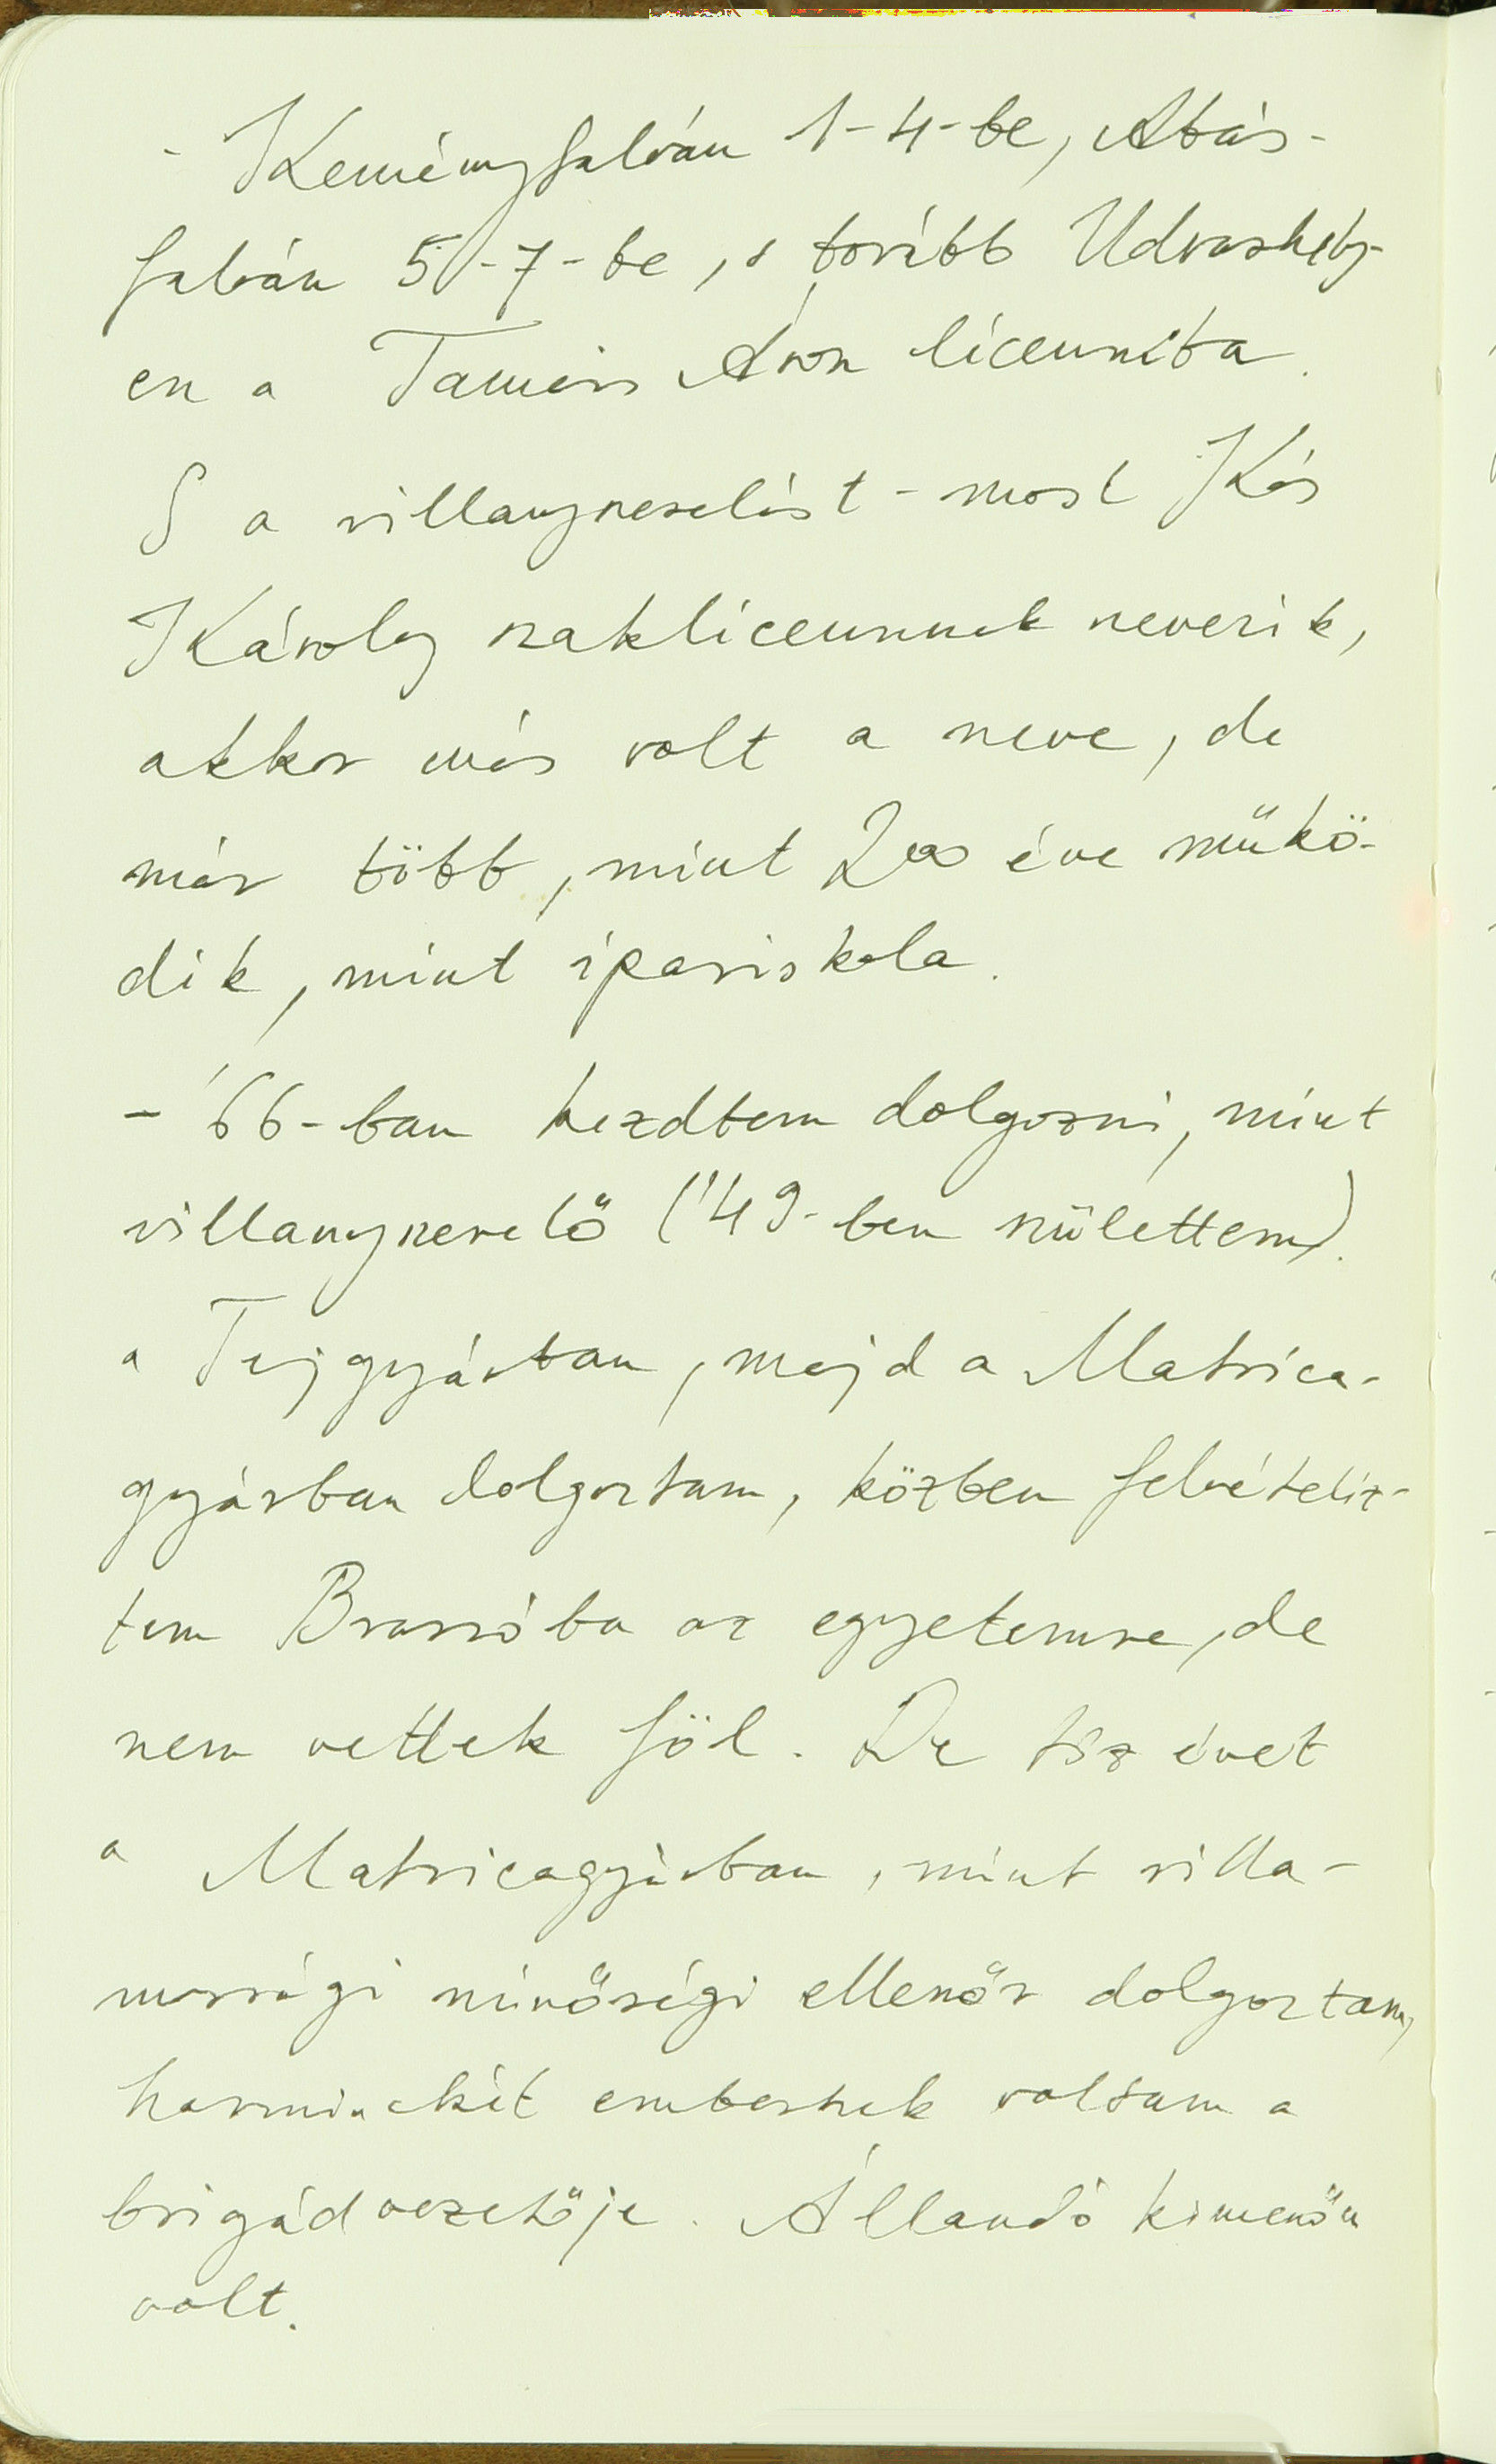 - Keményfalván 1-4-be, Abás-
falván 5-7-be, s tovább Udvarhely-
en a Tamási Áron líceumba.
S a villanyszerelést - most Kós
Károly szaklíceumnak nevezik,
akkor más volt a neve, de
már több, mint 200 éveműkö-
dik, mint ipariskola.
- '66-ban kezdtem dolgozni, mint
villanyszerelő ('49-ben születtem).
a Tejgyárban, majd a Matrica-
gyárban dolgoztam, közben felvételiz-
tem Brassóba az egyetemre, de
nem vettek föl. De tíz évet
a Matricagyárban, mint villa-
mossági minőségi ellenőr dolgoztam,
harminckét embernek voltam a
brigádvezetője. Állandó kimenőm
volt.